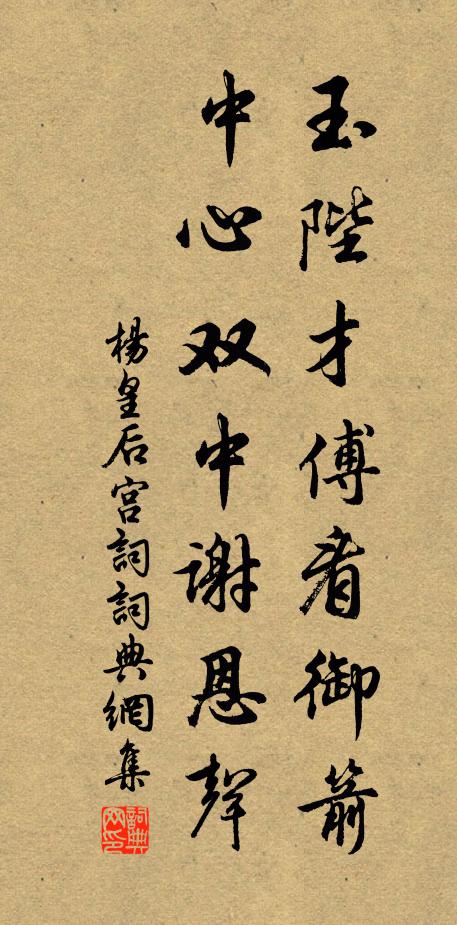 玉陛才傅看御箭
中心双中谢恩聲
楊皇后宫詞詞典網集
詞典网印